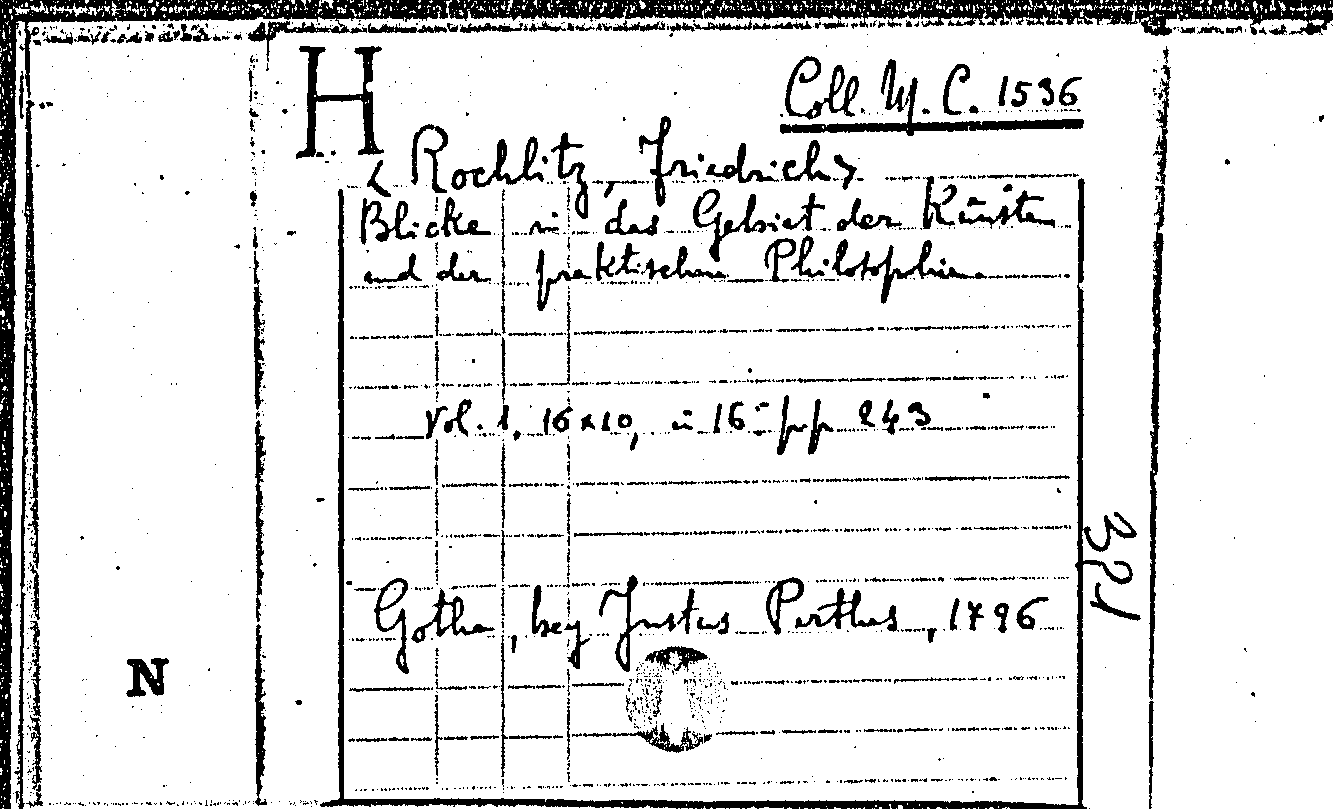 H
Coll. M. C. 1596
< Rochlitz, Friedrich>
Blicke in das Gebiet der Künste
und der praktischen Philosophie.
Vol. 1, 16x10, in 16º pp 243
Gotha, bey Justus Perthes, 1796
N